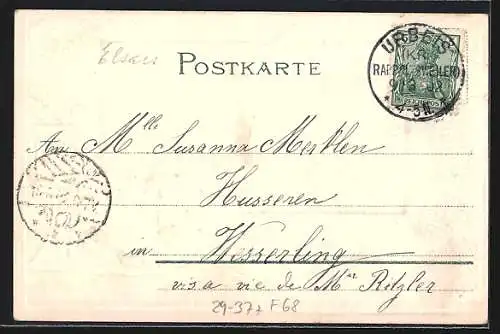 Elsass
POSTKARTE
URBEIS
(KR. RAPPOLTSWEILER)
An Mlle Susanna Merklen
Husseren
in Wesserling
vis a vie de Mr Ritzler
29-37z F68